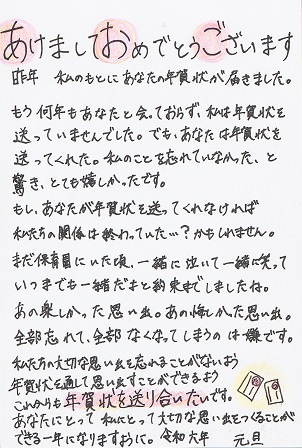 あけましておめでとうございます
昨年 私のもとにあなたの年賀状が届きました。
もう何年もあなたと会っておらず、私は年賀状を
送っていませんでした。でも、あなたは年賀状を
送ってくれた。私のことを忘れていなかった、と
驚き、とても嬉しかったです。
もし、あなたが年賀状を送ってくれなければ
私たちの関係は終わっていた…?かもしれません。
まだ保育園にいた頃、一緒に泣いて一緒に笑って
いつまでも一緒だよと約束までしましたね。
あの楽しかった思い出。あの悔しかった思い出。
全部忘れて、全部なくなってしまうのは嫌です。
私たちの大切な思い出を忘れることがないよう
年賀状を通して思い出すことができるよう
これからも年賀状を送り合いたいです。
あなたにとって私にとって大切な思い出をつくることが
できる一年になりますように。令和六年 元旦